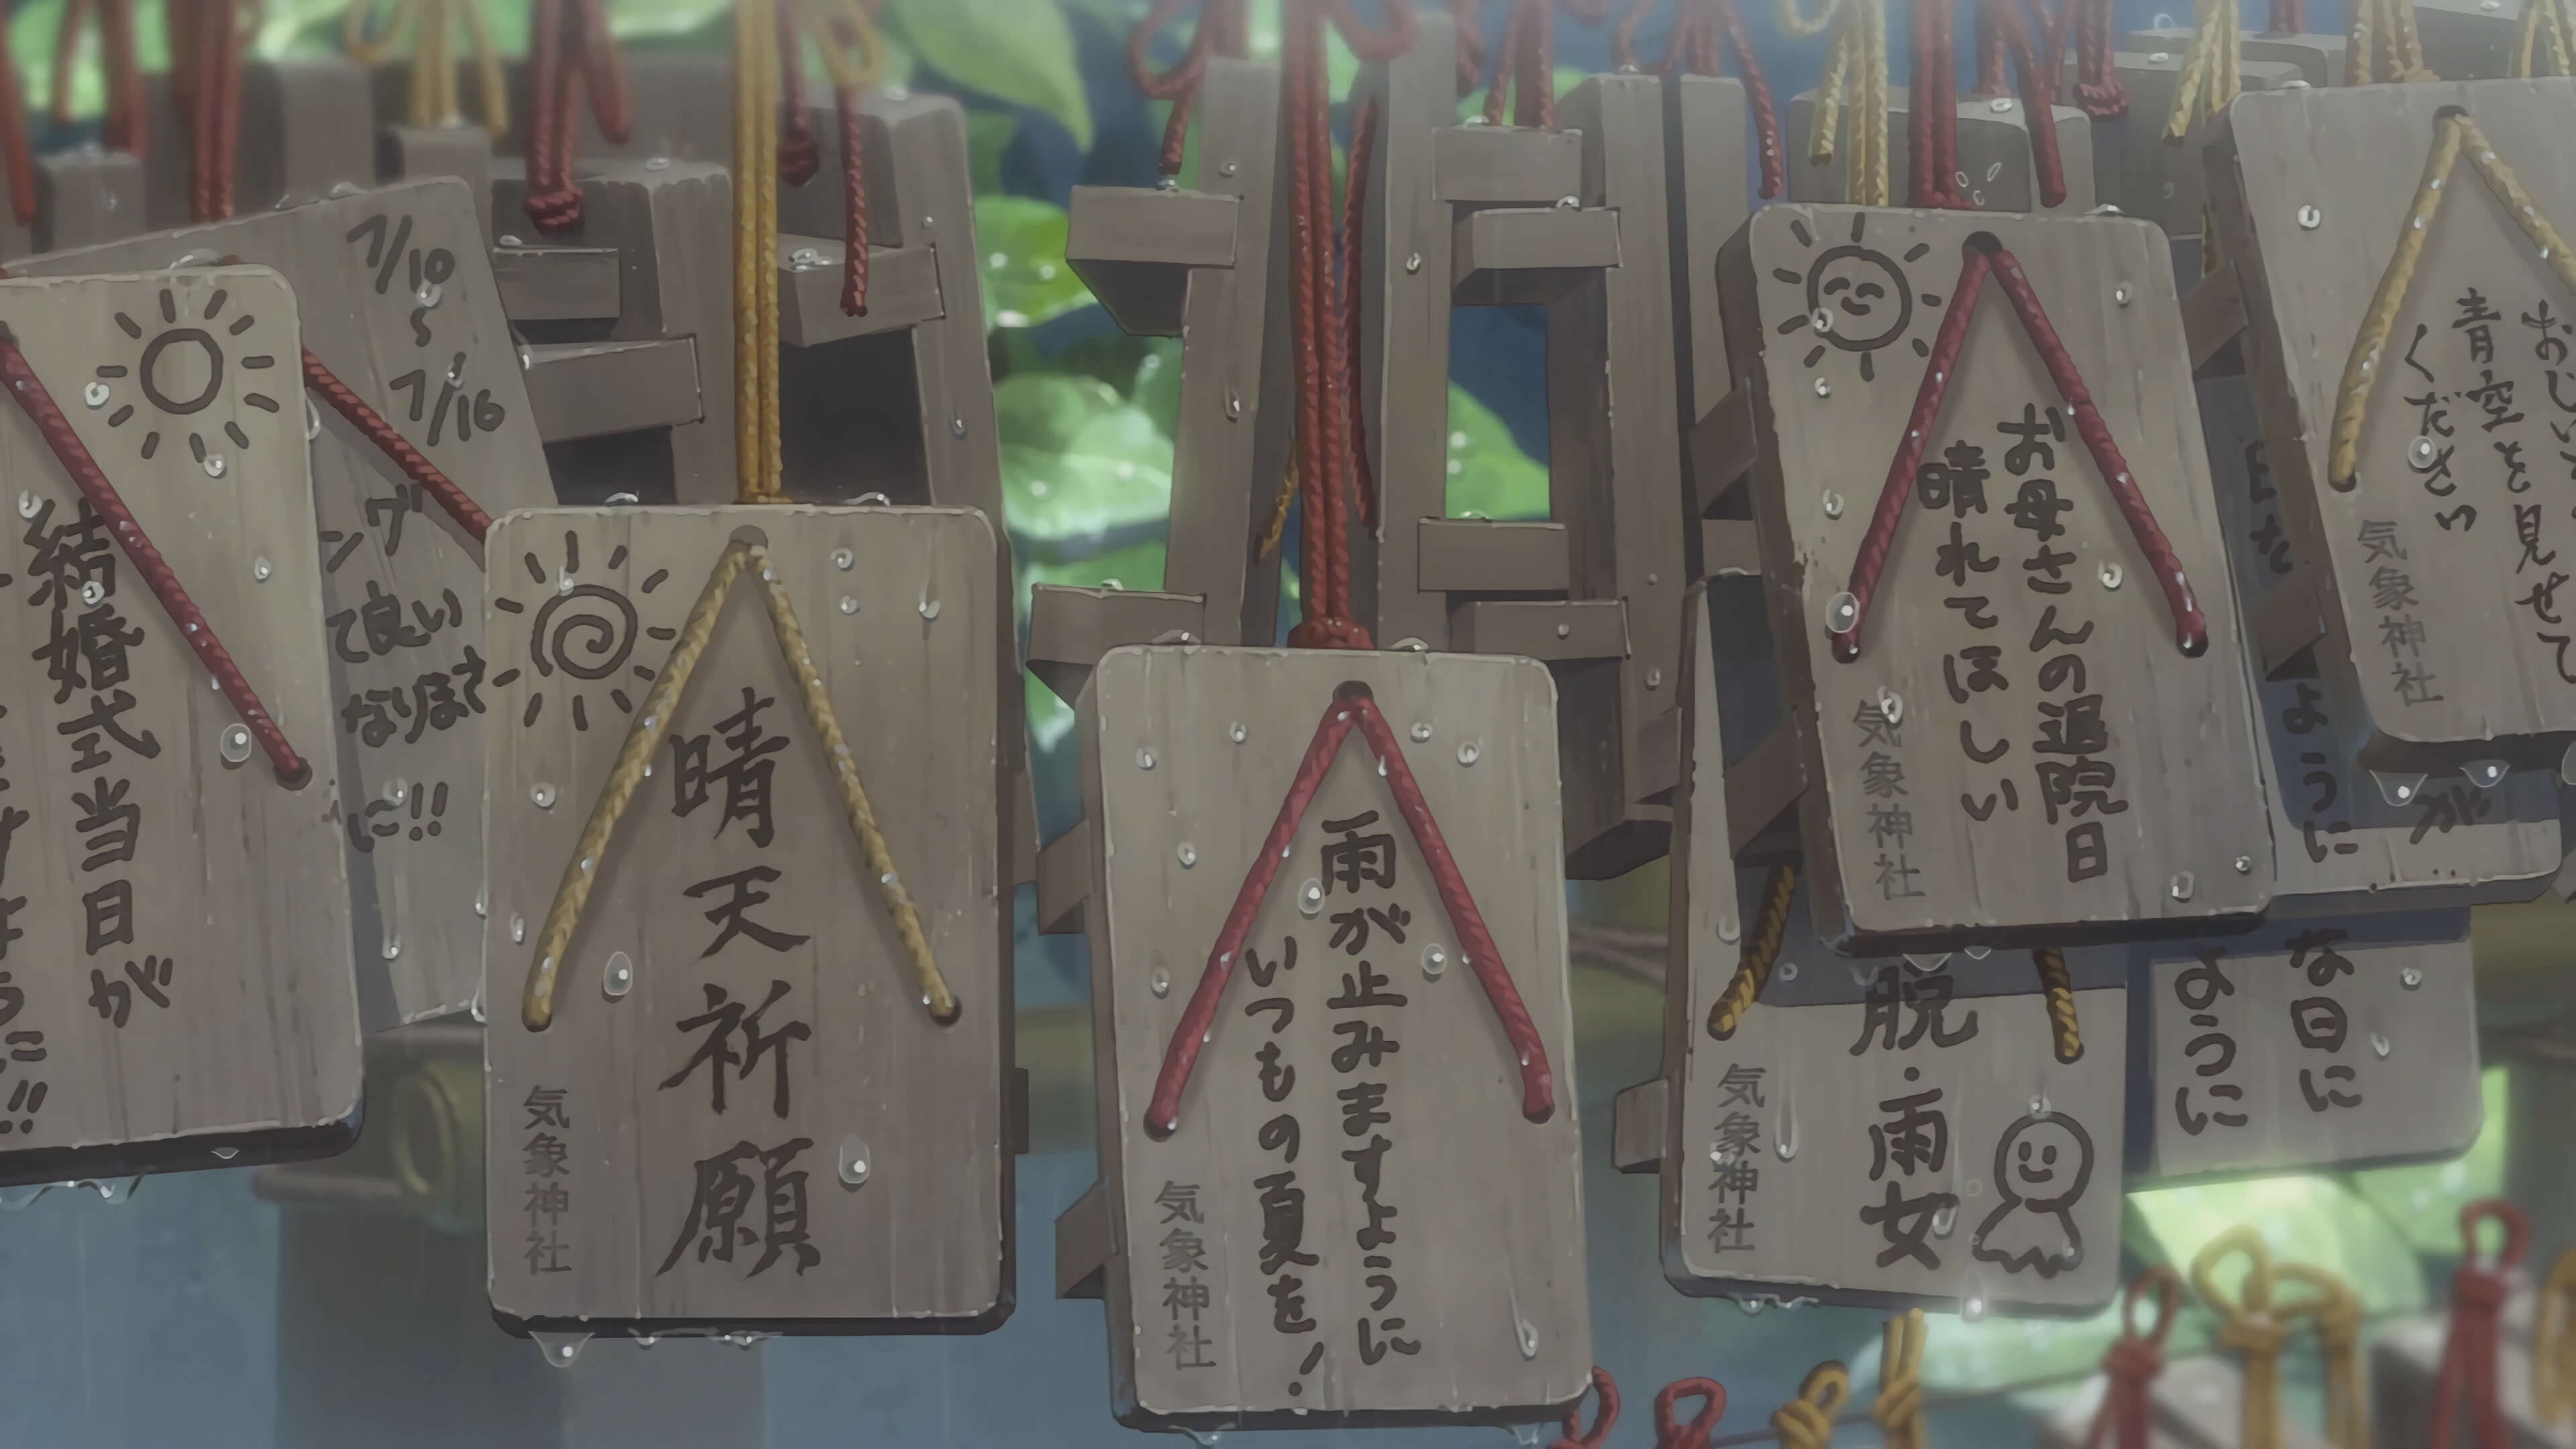 結婚式当日が
7/10
〜
7/16
て良い
なりまさ
に!!
晴天祈願
気象神社
雨が止みますように
いつもの夏を!
気象神社
お母さんの退院日
晴れてほしい
気象神社
脱・雨女
気象神社
な日に
ように
ように
が
おじい
青空を見せて
ください
気象神社